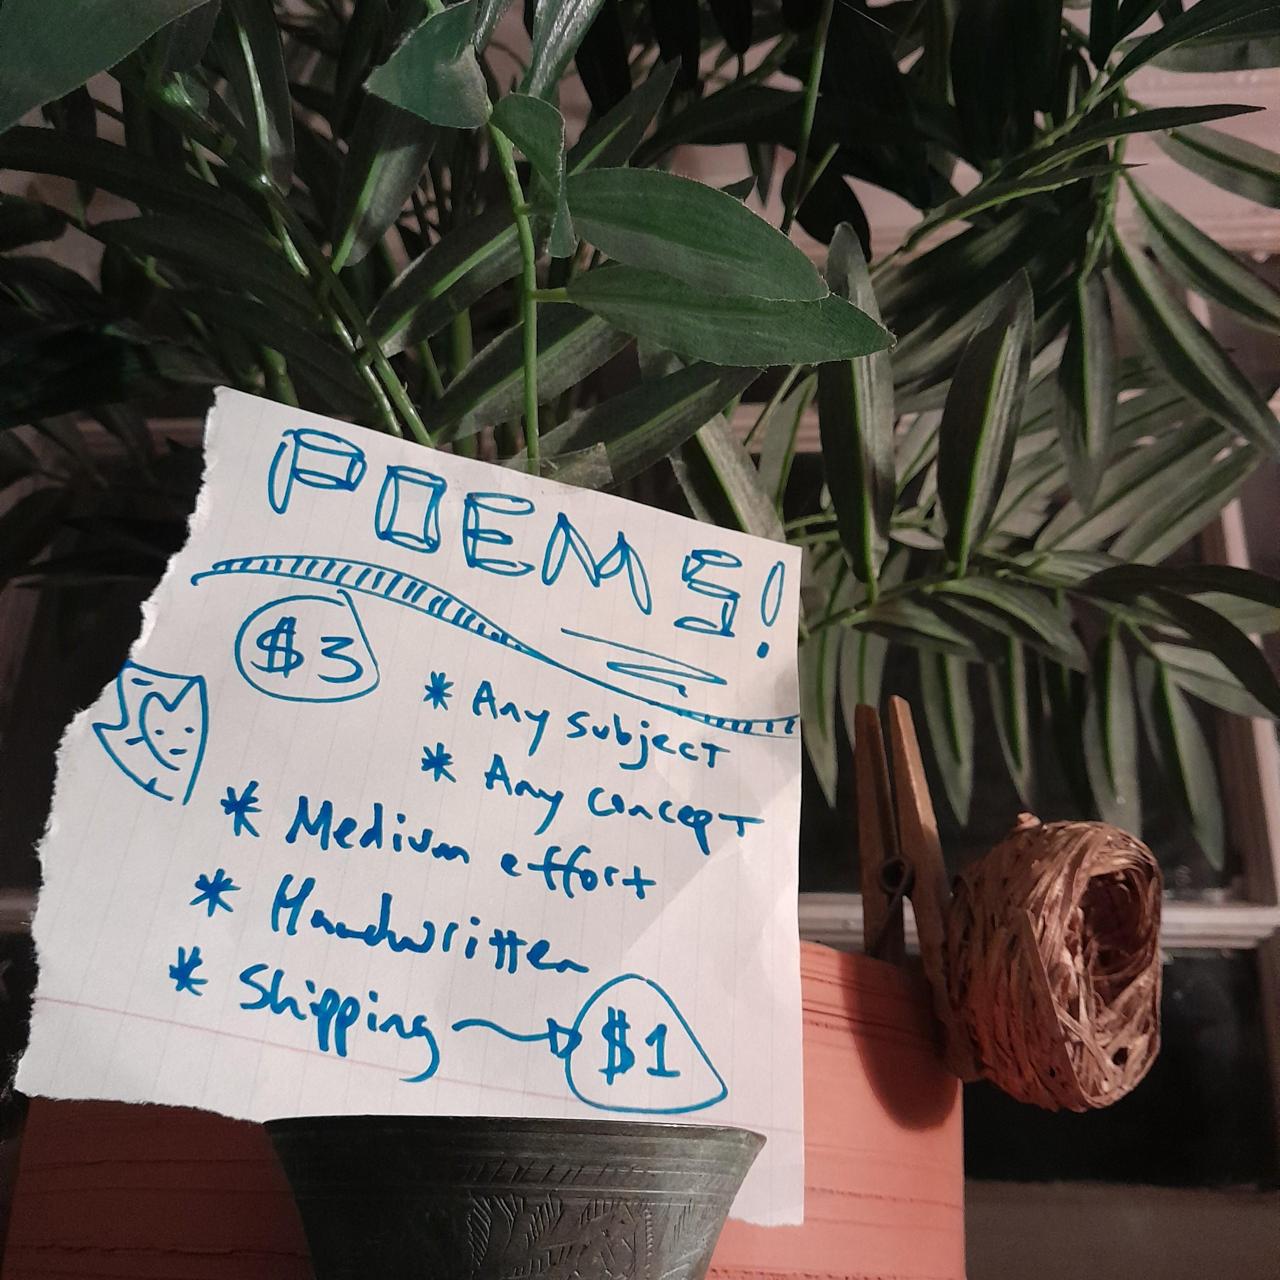 POEMS!
$3
* Any subject
* Any concept
* Medium effort
* Handwritten
* Shipping → $1